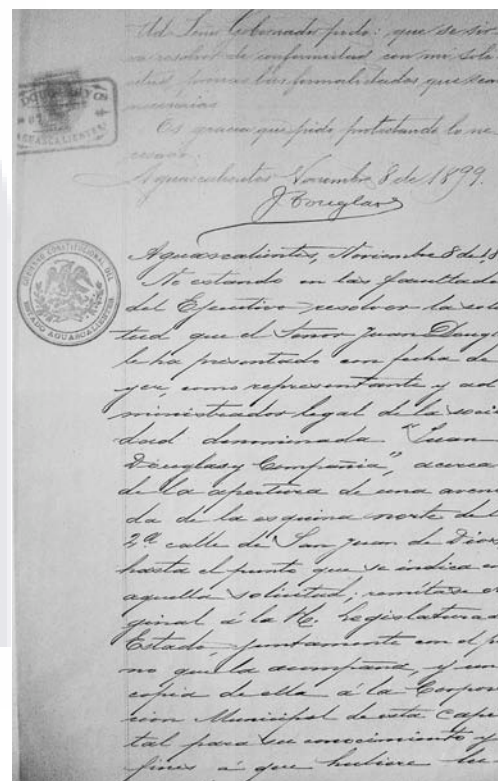 Ud Señor Gobernador pido: que se sir-
va resolver de conformidad con mi soli-
citud previas las formalidades que sean
necesarias
Es gracia que pido protestando lo ne-
cesario.
Aguascalientes Noviembre 8 de 1899.
J Douglas
DOUGLAS Y CA
AGUASCALIENTES
GOBIERNO CONSTITUCIONAL DEL
ESTADO AGUASCALIENTES
Aguascalientes, Noviembre 8 de 18
No estando en las facultade
del Ejecutivo resolver la soli
tud que el Señor Juan Doug
le ha presentado con fecha de
yer, como representante y ad
ministrador legal de la socie
dad denominada "Juan
Douglas y Compañia", acerca
de la apertura de una aven
da de la esquina norte de l
2ª calle de San Juan de Dios
hasta el punto que se indica en
aquella solicitud; remítase or
ginal á la H. Legislatura d
Estado, juntamente con el p
no que la acompaña, y un
copia de ella á la Corpor
cion Municipal de esta Capi
tal para su conocimiento y
fines á que hubiere lu